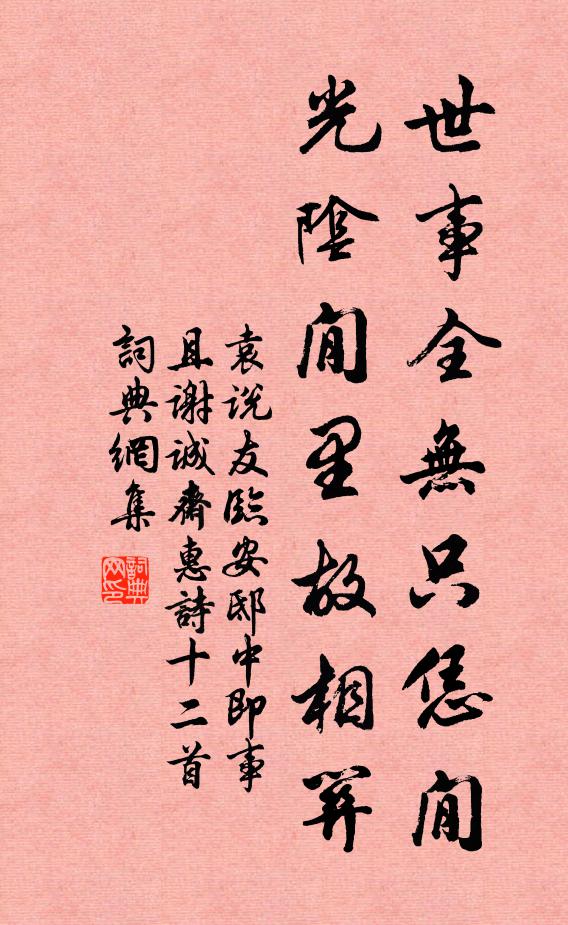 世事全無只恁閒
光陰閒里故相關
袁說友臨安邸中即事
且謝誠齋惠詩十二首
詞典網集
詞典网印